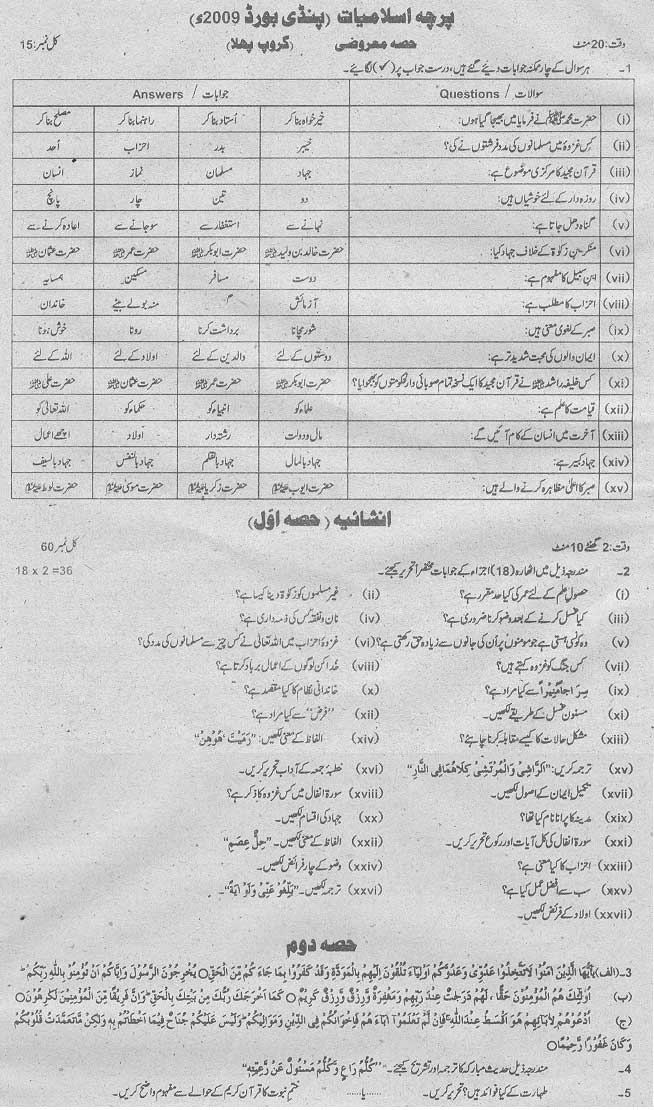 پرچہ اسلامیات (پنڈی بورڈ 2009ء)
وقت: 20 منٹ حصہ معروضی (گروپ پہلا) کل نمبر: 15
1- ہر سوال کے چار ممکنہ جوابات دیئے گئے ہیں، درست جواب پر (✓) لگائیے۔
سوالات / Questions جوابات / Answers
(i) حضرت محمد ﷺ نے فرمایا میں بھیجا گیا ہوں: خیر خواہ بنا کر اُستاد بنا کر راہنما بنا کر مصلح بنا کر
(ii) کس غزوہ میں مسلمانوں کی مدد فرشتوں نے کی؟ خیبر بدر احزاب اُحد
(iii) قرآن مجید کا مرکزی موضوع ہے: جہاد مسلمان نماز انسان
(iv) روزہ دار کے لئے خوشیاں ہیں: دو تین چار پانچ
(v) گناہ دھل جاتا ہے: نہانے سے استغفار سے سو جانے سے اعادہ کرنے سے
(vi) منکرین زکوٰة کے خلاف جہاد کیا: حضرت خالد بن ولیدؓ حضرت ابوبکرؓ حضرت عمرؓ حضرت عثمانؓ
(vii) ابن سبیل کا مفہوم ہے: دوست مسافر مسکین ہمسایہ
(viii) احزاب کا مطلب ہے: آزمائش گروہ منہ بولے بیٹے خاندان
(ix) صبر کے لغوی معنی ہیں: شور مچانا برداشت کرنا رونا خوش ہونا
(x) ایمان والوں کی محبت شدید تر ہے: دوستوں کے لئے والدین کے لئے اولاد کے لئے اللہ کے لئے
(xi) کس خلیفہ راشدؓ نے قرآن مجید کا ایک نسخہ تمام صوبائی دارلحکومتوں کو بھجوایا؟ حضرت ابوبکرؓ حضرت عمرؓ حضرت عثمانؓ حضرت علیؓ
(xii) قیامت کا علم ہے: علماء کو انبیاء کو حکماء کو اللہ تعالیٰ کو
(xiii) آخرت میں انسان کے کام آئیں گے: مال و دولت رشتہ دار اولاد اچھے اعمال
(xiv) جہاد کبیر ہے: جہاد بالمال جہاد بالقلم جہاد بالنفس جہاد بالسیف
(xv) صبر کا اعلیٰ مظاہرہ کرنے والے ہیں: حضرت ایوبؑ حضرت زکریاؑ حضرت موسیٰؑ حضرت لوطؑ
انشائیہ (حصہ اوّل)
وقت: 2 گھنٹے 10 منٹ کل نمبر 60
2- مندرجہ ذیل میں اٹھارہ (18) اجزاء کے جوابات مختصراً تحریر کیجئے۔ 18 x 2 =36
(i) حصولِ علم کے لئے عمر کی کیا حد مقرر ہے؟ (ii) غیر مسلموں کو زکوٰة دینا کیسا ہے؟
(iii) کیا غسل کرنے کے بعد وضو کرنا ضروری ہے؟ (iv) نان و نفقہ کس کی ذمہ داری ہے؟
(v) وہ کونسی ہستی ہے جو مومنوں پر اُن کی جانوں سے زیادہ حق رکھتی ہے؟ (vi) غزوۂ احزاب میں اللہ تعالیٰ نے کس چیز سے مسلمانوں کی مدد کی؟
(vii) کس جنگ کو غزوہ کہتے ہیں؟ (viii) خدا کن لوگوں کے اعمال برباد کرتا ہے؟
(ix) سِرَاجًا مُّنِيْرًا سے کیا مراد ہے؟ (x) خاندانی نظام کا کیا مقصد ہے؟
(xi) مسنون غسل کے طریقے لکھیں۔ (xii) ”فرض“ سے کیا مراد ہے؟
(xiii) مشکل حالات کا کیسے مقابلہ کرنا چاہئے؟ (xiv) الفاظ کے معنی لکھیں: ”رَمَيْتَ، مُوْهِنُ“
(xv) ترجمہ کریں: ”اَلرَّاشِیْ وَالْمُرْتَشِیْ كِلَاهُمَا فِی النَّارِ“ (xvi) خطبۂ جمعہ کے آداب تحریر کریں۔
(xvii) تکمیل ایمان کے اصول لکھیں۔ (xviii) سورة انفال میں کس غزوہ کا ذکر ہے؟
(xix) مدینہ کا پرانا نام کیا تھا؟ (xx) جہاد کی اقسام لکھیں۔
(xxi) سورة انفال کی کل آیات اور رکوع تحریر کریں۔ (xxii) الفاظ کے معنی لکھیں۔ ”حِلٌّ، عِصَمِ“
(xxiii) احزاب کا کیا معنی ہے؟ (xxiv) وضو کے چار فرائض لکھیں۔
(xxv) سب سے افضل عمل کیا ہے؟ (xxvi) ترجمہ لکھیں۔ ”بَلِّغُوْ عَنِّیْ وَلَوْ اٰيَةً“۔
(xxvii) اولاد کے فرائض لکھیں۔
حصہ دوم
3- (الف) يٰٓاَيُّهَا الَّذِيْنَ اٰمَنُوْا لَا تَتَّخِذُوْا عَدُوِّیْ وَعَدُوَّكُمْ اَوْلِيَآءَ تُلْقُوْنَ اِلَيْهِمْ بِالْمَوَدَّةِ وَقَدْ كَفَرُوْا بِمَا جَآءَ كُمْ مِّنَ الْحَقِّ يُخْرِجُوْنَ الرَّسُوْلَ وَاِيَّاكُمْ اَنْ تُؤْمِنُوْا بِاللّٰهِ رَبِّكُمْ
(ب) اُولٰٓئِكَ هُمُ الْمُؤْمِنُوْنَ حَقًّا لَهُمْ دَرَجٰتٌ عِنْدَ رَبِّهِمْ وَمَغْفِرَةٌ وَّرِزْقٌ كَرِيْمٌ كَمَآ اَخْرَجَكَ رَبُّكَ مِنْ بَيْتِكَ بِالْحَقِّ وَاِنَّ فَرِيْقًا مِّنَ الْمُؤْمِنِيْنَ لَكٰرِهُوْنَ
(ج) اُدْعُوْهُمْ لِاٰبَآئِهِمْ هُوَ اَقْسَطُ عِنْدَ اللّٰهِ فَاِنْ لَّمْ تَعْلَمُوْٓا اٰبَآءَ هُمْ فَاِخْوَانُكُمْ فِی الدِّيْنِ وَمَوَالِيْكُمْ وَلَيْسَ عَلَيْكُمْ جُنَاحٌ فِيْمَآ اَخْطَاْتُمْ بِهٖ وَلٰكِنْ مَّا تَعَمَّدَتْ قُلُوْبُكُمْ
وَكَانَ غَفُوْرًا رَّحِيْمًا
4- مندرجہ ذیل حدیث مبارکہ کا ترجمہ اور تشریح کیجئے۔ ”كُلُّكُمْ رَاعٍ وَّكُلُّكُمْ مَسْئُوْلٌ عَنْ رَّعِيَّتِهٖ“
5- طہارت کے کیا فوائد ہیں؟ تحریر کریں۔ ......یا...... ختم نبوت کا قرآن کریم کے حوالے سے مفہوم واضح کریں۔